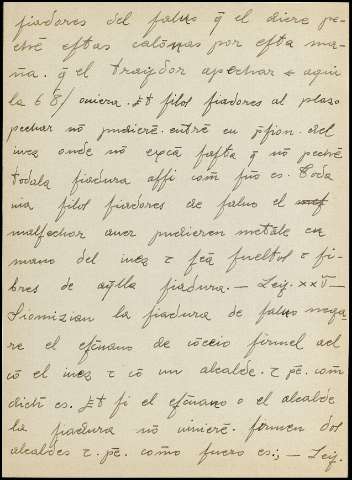 fiadores del saluo q̃ el diere pe-
chẽ estas calõnas por esta ma-
ña. q̃ el traydor apechar e aqui
la 68/ oniera. Et silos fiadores al plazo
pechar nõ pudierẽ. entrẽ en p̃sion. del
iuez onde nõ excã fasta q̃ nõ pechẽ
todala fiadura assi com̃ fuo es. Toda
uia silos fiadores de saluo el
malfechor auer pudieren metãle en
mano del iuez τ seã sueltos τ li-
bres de aq̃lla fiadura. — Ley. xxv —
Si omizian la fiadura de saluo nega-
re el esc̃uano de cõceio firmel ael
cõ el iuez τ cõ un alcalde. τ pẽ. com̃
dich̃ es. Et si el esc̃uano o el alcalde
la fiadura nõ uinierẽ. firmen dos
alcaldes τ. pẽ. como fuero es; — Ley.